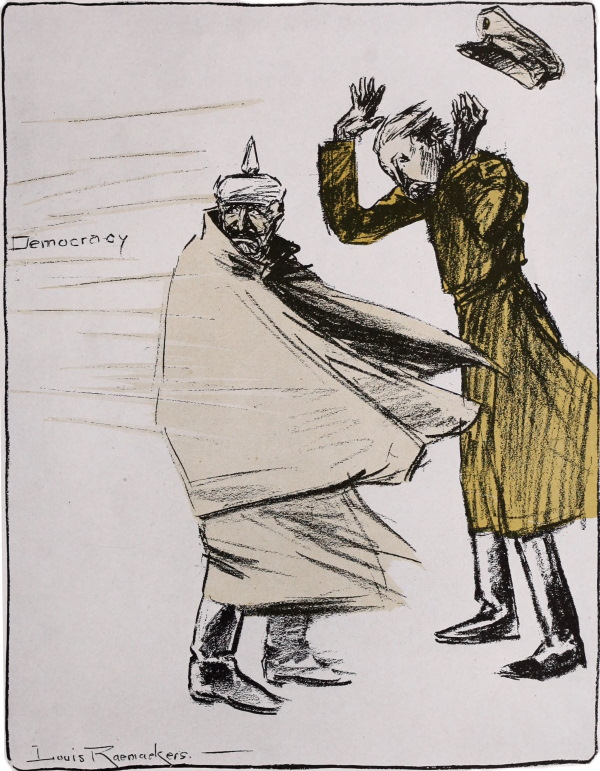 Democracy
Louis Raemaekers.